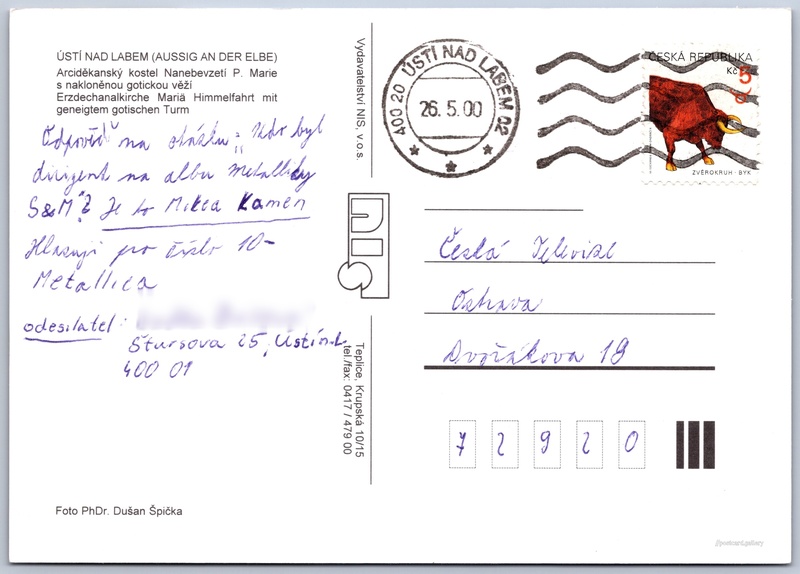 ÚSTÍ NAD LABEM (AUSSIG AN DER ELBE)
Arciděkanský kostel Nanebevzetí P. Marie
s nakloněnou gotickou věží
Erzdechanalkirche Mariä Himmelfahrt mit
geneigtem gotischen Turm
Odpověď na otázku: "Kdo byl
dirigent na albu Metallicy
S&M"? Je to Mikea Kamen
Hlasuji pro číslo 10-
Metallica
odesilatel:
Štursova 25, Ústí n. L.
400 01
Foto PhDr. Dušan Špička
Vydavatelství NIS, v.o.s.
nis
Teplice, Krupská 10/15
tel./fax: 0417 / 479 00
400 20 ÚSTÍ NAD LABEM 02
26.5.00
ČESKÁ REPUBLIKA
Kč 5
ZVĚROKRUH - BYK
Česká Televize
Ostrava
Dvořákova 18
72920
@postcard.gallery